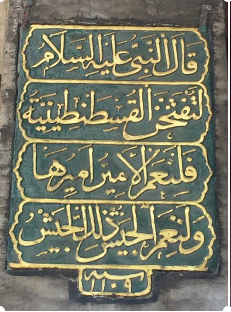 قال النبي عليه السلام
لتفتحن القسطنطينية
فلنعم الأمير أميرها
ولنعم الجيش ذلك الجيش
سنه
١١٠٩